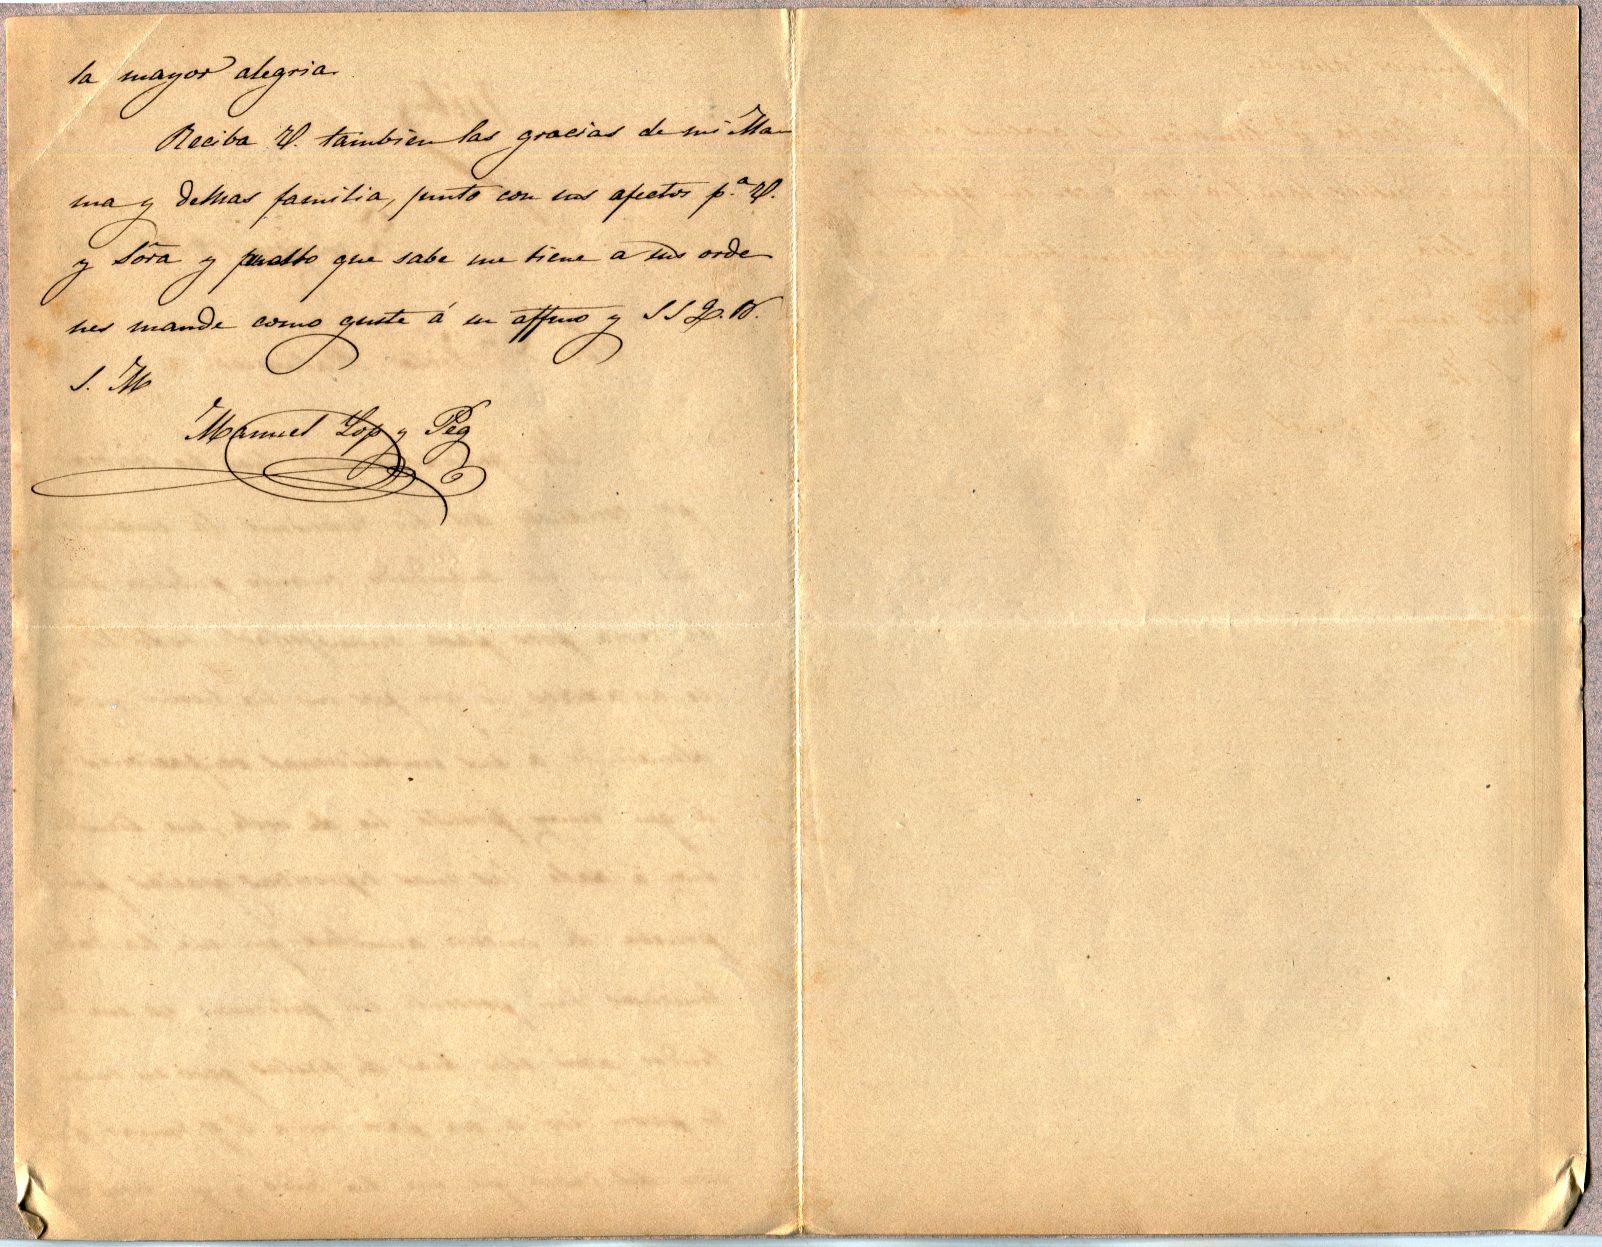 la mayor alegria.
Reciba V. tambien las gracias de mi Ma-
ma y demas familia, junto con sus afectos p.ª V.
y Sõra y puesto que sabe me tiene a sus orde
nes mande como guste á su affmo y S S Q. B.
S. M
Manuel Lop y Peg